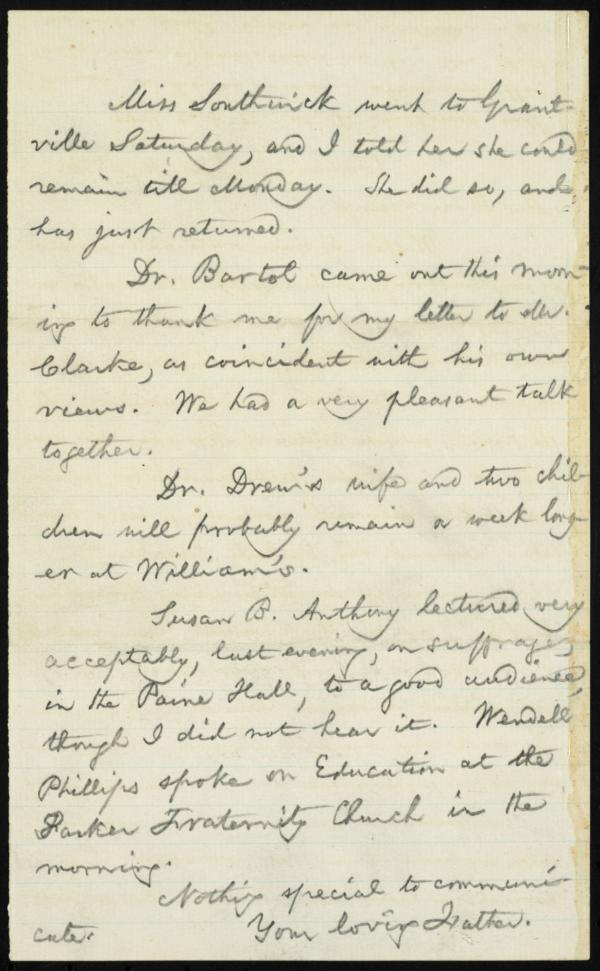 Miss Southwick went to Grant-
ville Saturday, and I told her she could
remain till Monday. She did so, and
has just returned.
Dr. Bartol came out this morn-
ing to thank me for my letter to Mr.
Clarke, as coincident with his own
views. We had a very pleasant talk
together.
Dr. Drew's wife and two chil-
dren will probably remain a week long-
er at William's.
Susan B. Anthony lectured very
acceptably, last evening, on suffrage,
in the Paine Hall, to a good audience,
though I did not hear it. Wendell
Phillips spoke on Education at the
Parker Fraternity Church in the
morning.
Nothing special to communi-
cate.
Your loving Father.